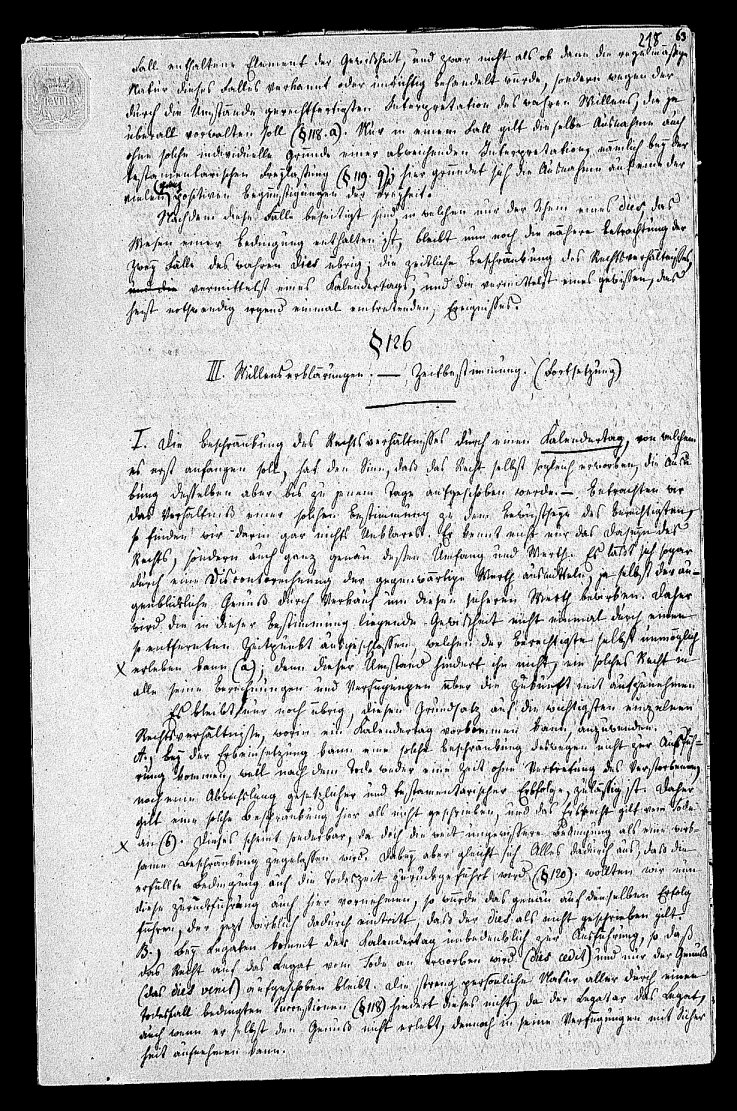 218 63
Fall enthaltene Element der Gewißheit, und zwar nicht als ob dann die regelmäßige
Natur dieses Falles verkannt oder unrichtig behandelt würde, sondern wegen der
durch die Umstände gerechtfertigten Interpretation des wahren Willens, die ja
überall vorwalten soll (§ 118. a). Nur in einem Fall gilt dieselbe Ausnahme auch
ohne solche individuelle Gründe einer abweichenden Interpretation, nämlich bey der
testamentarischen Freylassung (§ 119. q); hier gründet sich die Ausnahme auf eine der
vielen ganz positiven Begünstigungen der Freyheit.
Nachdem diese Fälle beseitigt sind, in welchen nur der Schein eines dies, das
Wesen einer Bedingung enthalten ist, bleibt nun noch die nähere Betrachtung der
zwey Fälle des wahren dies übrig; die zeitliche Beschränkung des Rechtsverhältnisses
vermittelst eines Kalendertags, und die vermittelst eines gewissen, das
heißt nothwendig irgend einmal eintretenden, Ereignisses.
§ 126
III. Willenserklärungen. — Zeitbestimmung. (Fortsetzung)
I. Die Beschränkung des Rechtsverhältnisses durch einen Kalendertag, von welchem
es erst anfangen soll, hat den Sinn, daß das Recht selbst sogleich erworben, die Ausü-
bung desselben aber bis zu jenem Tage aufgeschoben werde. — Betrachten wir
das Verhältniß einer solchen Bestimmung zu dem Bewußtseyn des Berechtigten,
so finden wir darin gar nichts Unklares. Er kennt nicht nur das Daseyn des
Rechts, sondern auch ganz genau dessen Umfang und Werth. Es läßt sich sogar
durch eine Discontorechnung der gegenwärtige Werth ausmitteln, ja selbst der au-
genblickliche Genuß durch Verkauf um diesen sicheren Werth bewirken. Daher
wird die in dieser Bestimmung liegende Gewißheit nicht einmal durch einen
so entfernten Zeitpunkt ausgeschlossen, welchen der Berechtigte selbst unmöglich
x erleben kann (a); denn dieser Umstand hindert ihn nicht, ein solches Recht in
alle seine Berechnungen und Verfügungen über die Zukunft mit aufzunehmen.
Es bleibt nur noch übrig, diesen Grundsatz auf die wichtigsten einzelnen
Rechtsverhältnisse, worin ein Kalendertag vorkommen kann, anzuwenden.
A.) Bey der Erbeinsetzung kann eine solche Beschränkung deswegen nicht zur Ausfüh-
rung kommen, weil nach dem Tode weder eine Zeit ohne Vertretung des Verstorbenen,
noch eine Abwechslung gesetzlicher und testamentarischer Erbfolge, zulässig ist. Daher
gilt eine solche Beschränkung hier als nicht geschrieben, und das Erbrecht gilt vom Tode
x an (b). Dieses scheint sonderbar, da doch die weit ungewissere Bedingung als eine wirk-
same Beschränkung zugelassen wird. Dabey aber gleicht sich Alles dadurch aus, daß die
erfüllte Bedingung auf die Todeszeit zurückgeführt wird (§ 120). Wollten wir nun
diese Zurückführung auch hier vornehmen, so würde das genau auf denselben Erfolg
führen, der jetzt wirklich dadurch eintritt, daß der dies als nicht geschrieben gilt.
B.) Bey Legaten kommt der Kalendertag unbedenklich zur Ausführung, so daß
das Recht auf das Legat vom Tode an erworben wird (dies cedit) und nur der Genuß
(das dies venit) aufgeschoben bleibt. Die streng persönliche Natur aller durch einen
Todesfall bedingten Successionen (§ 118) hindert dieses nicht, da der Legatar das Legat,
auch wenn er selbst den Genuß nicht erlebt, dennoch in seine Verfügungen mit Sicher
heit aufnehmen kann.